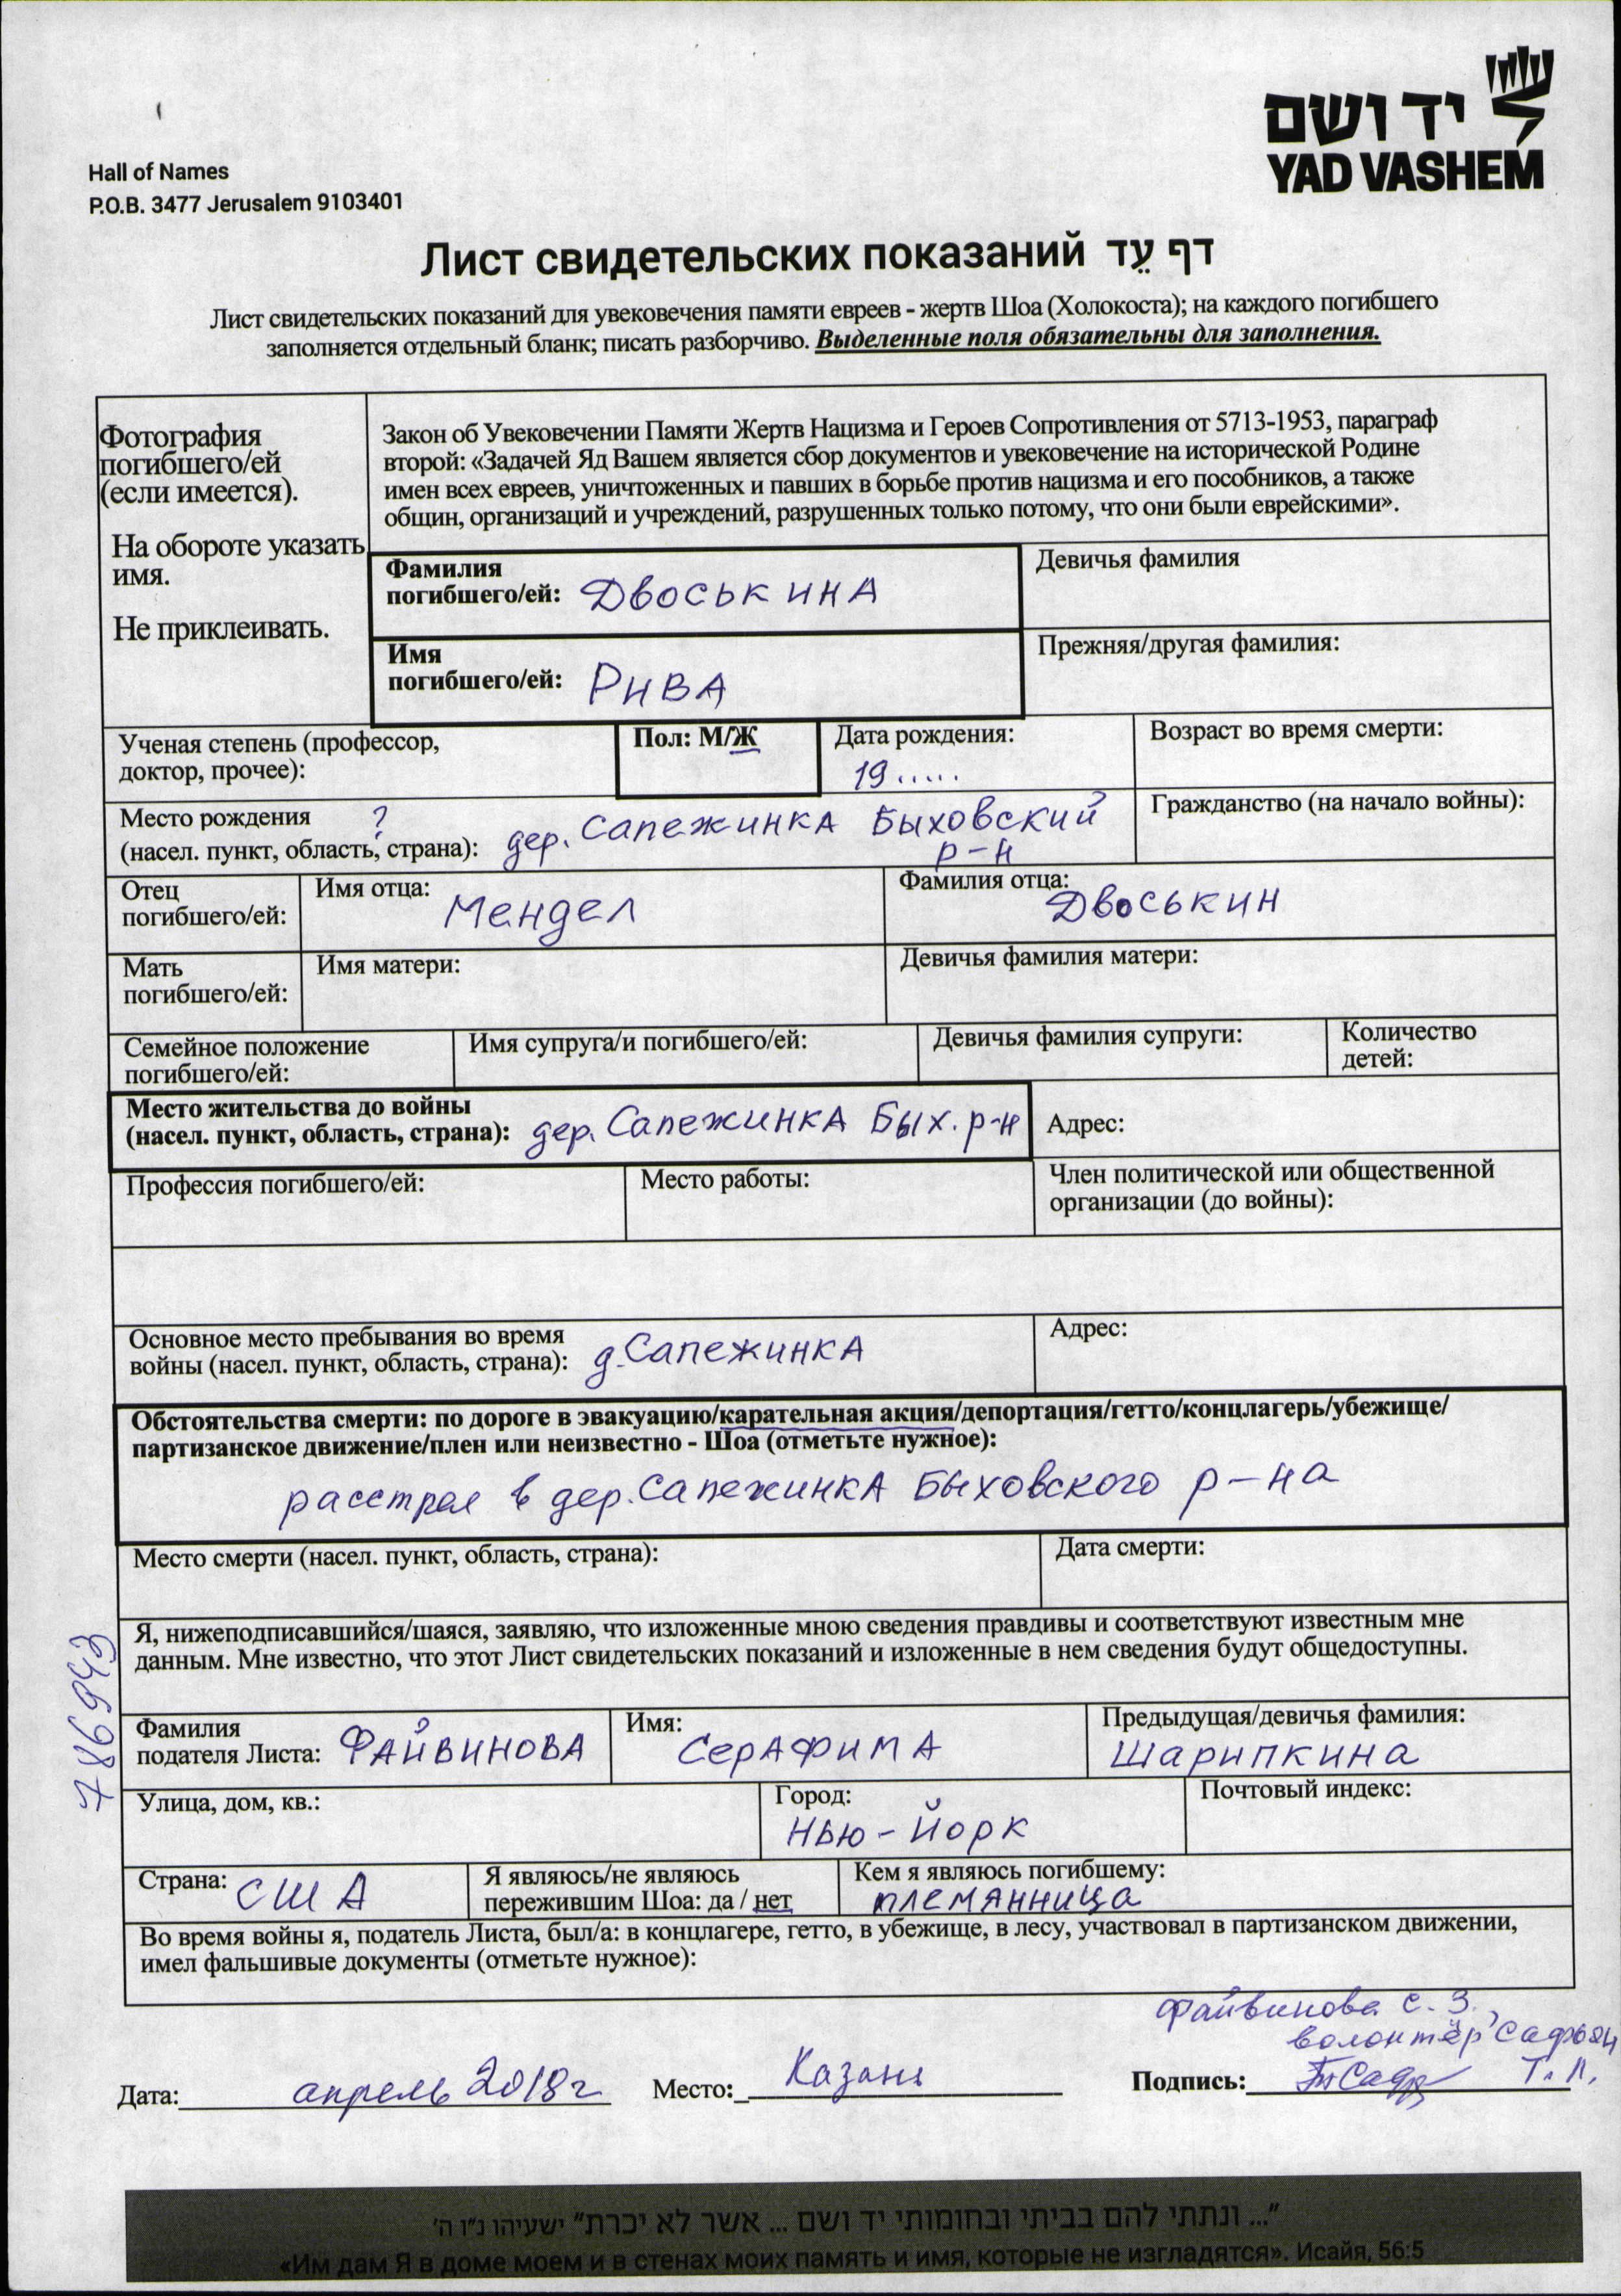 יד ושם
YAD VASHEM
Hall of Names
P.O.B. 3477 Jerusalem 9103401
Лист свидетельских показаний דף עֵד
Лист свидетельских показаний для увековечения памяти евреев - жертв Шоа (Холокоста); на каждого погибшего
заполняется отдельный бланк; писать разборчиво. Выделенные поля обязательны для заполнения.
Фотография
погибшего/ей
(если имеется).
На обороте указать
имя.
Не приклеивать.
Закон об Увековечении Памяти Жертв Нацизма и Героев Сопротивления от 5713-1953, параграф
второй: «Задачей Яд Вашем является сбор документов и увековечение на исторической Родине
имен всех евреев, уничтоженных и павших в борьбе против нацизма и его пособников, а также
общин, организаций и учреждений, разрушенных только потому, что они были еврейскими».
Фамилия
погибшего/ей: Двоськина
Девичья фамилия
Имя
погибшего/ей: Рива
Прежняя/другая фамилия:
Ученая степень (профессор,
доктор, прочее):
Пол: М/Ж
Дата рождения:
19.....
Возраст во время смерти:
Место рождения ?
(насел. пункт, область, страна): дер. Сапежинка Быховский
р-н
Гражданство (на начало войны):
Отец
погибшего/ей:
Имя отца: Мендел
Фамилия отца: Двоськин
Мать
погибшего/ей:
Имя матери:
Девичья фамилия матери:
Семейное положение
погибшего/ей:
Имя супруга/и погибшего/ей:
Девичья фамилия супруги:
Количество
детей:
Место жительства до войны
(насел. пункт, область, страна): дер. Сапежинка Бых. р-н
Адрес:
Профессия погибшего/ей:
Место работы:
Член политической или общественной
организации (до войны):
Основное место пребывания во время
войны (насел. пункт, область, страна): д. Сапежинка
Адрес:
Обстоятельства смерти: по дороге в эвакуацию/карательная акция/депортация/гетто/концлагерь/убежище/
партизанское движение/плен или неизвестно - Шоа (отметьте нужное):
расстрел в дер. Сапежинка Быховского р-на
Место смерти (насел. пункт, область, страна):
Дата смерти:
Я, нижеподписавшийся/шаяся, заявляю, что изложенные мною сведения правдивы и соответствуют известным мне
данным. Мне известно, что этот Лист свидетельских показаний и изложенные в нем сведения будут общедоступны.
786943
Фамилия
подателя Листа: Файвинова
Имя: Серафима
Предыдущая/девичья фамилия:
Шарипкина
Улица, дом, кв.:
Город:
Нью-Йорк
Почтовый индекс:
Страна: США
Я являюсь/не являюсь
пережившим Шоа: да / нет
Кем я являюсь погибшему:
племянница
Во время войны я, податель Листа, был/а: в концлагере, гетто, в убежище, в лесу, участвовал в партизанском движении,
имел фальшивые документы (отметьте нужное):
Файвинова С. З.,
волонтёр Сафьян
Т. Л.
Дата: апрель 2018г
Место: Казань
Подпись:
"... ונתתי להם בביתי ובחומותי יד ושם ... אשר לא יכרת" ישעיהו נ"ו ה'
«Им дам Я в доме моем и в стенах моих память и имя, которые не изгладятся». Исайя, 56:5